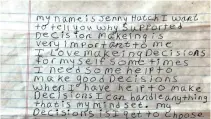 my name is Jenny Hatch I want
to tell you why Supported
Decision Makeing is
very important to me
I Love making Decisions
for my self some times
I need some help to
make good Decisions
when I have help to make
Decisions I can handle anything
that's my mind get my
Decisions is I get to choose